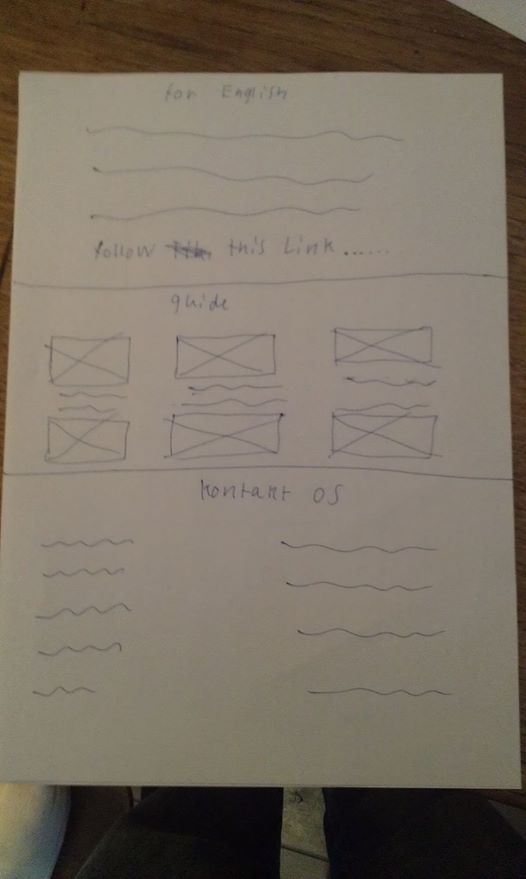 for English
follow this Link......
guide
kontakt os